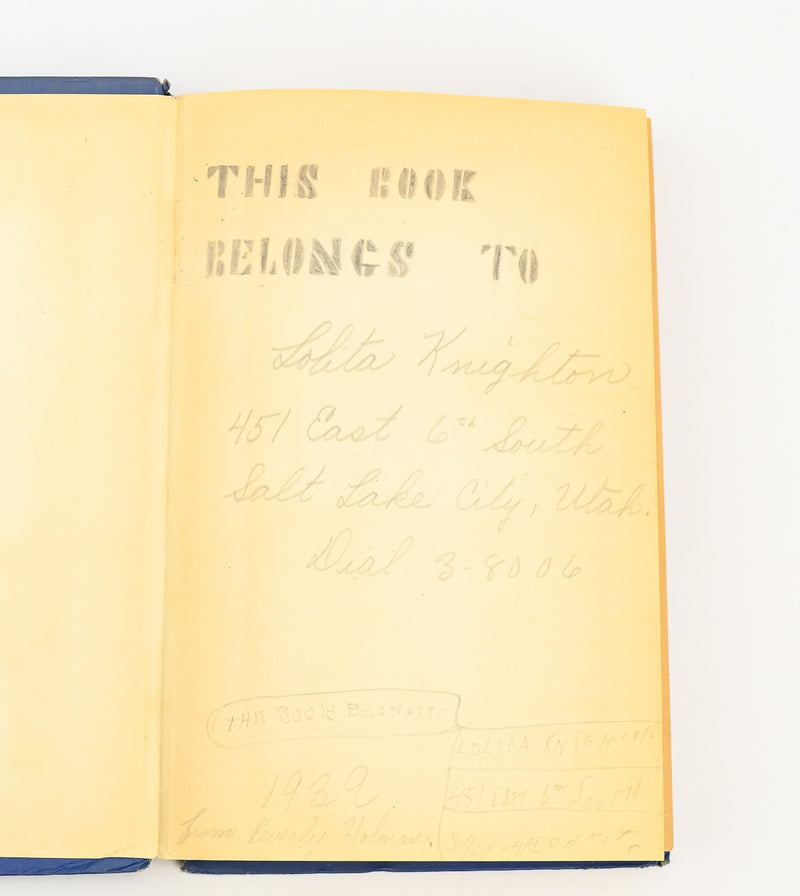 THIS BOOK
BELONGS TO
Lolita Knighton
451 East 6th South
Salt Lake City, Utah.
Dial 3-8006
THIS BOOK BELONGS TO
LOLITA KNIGHTON
451 EAST 6TH SOUTH
1939
From Beverly Holman.